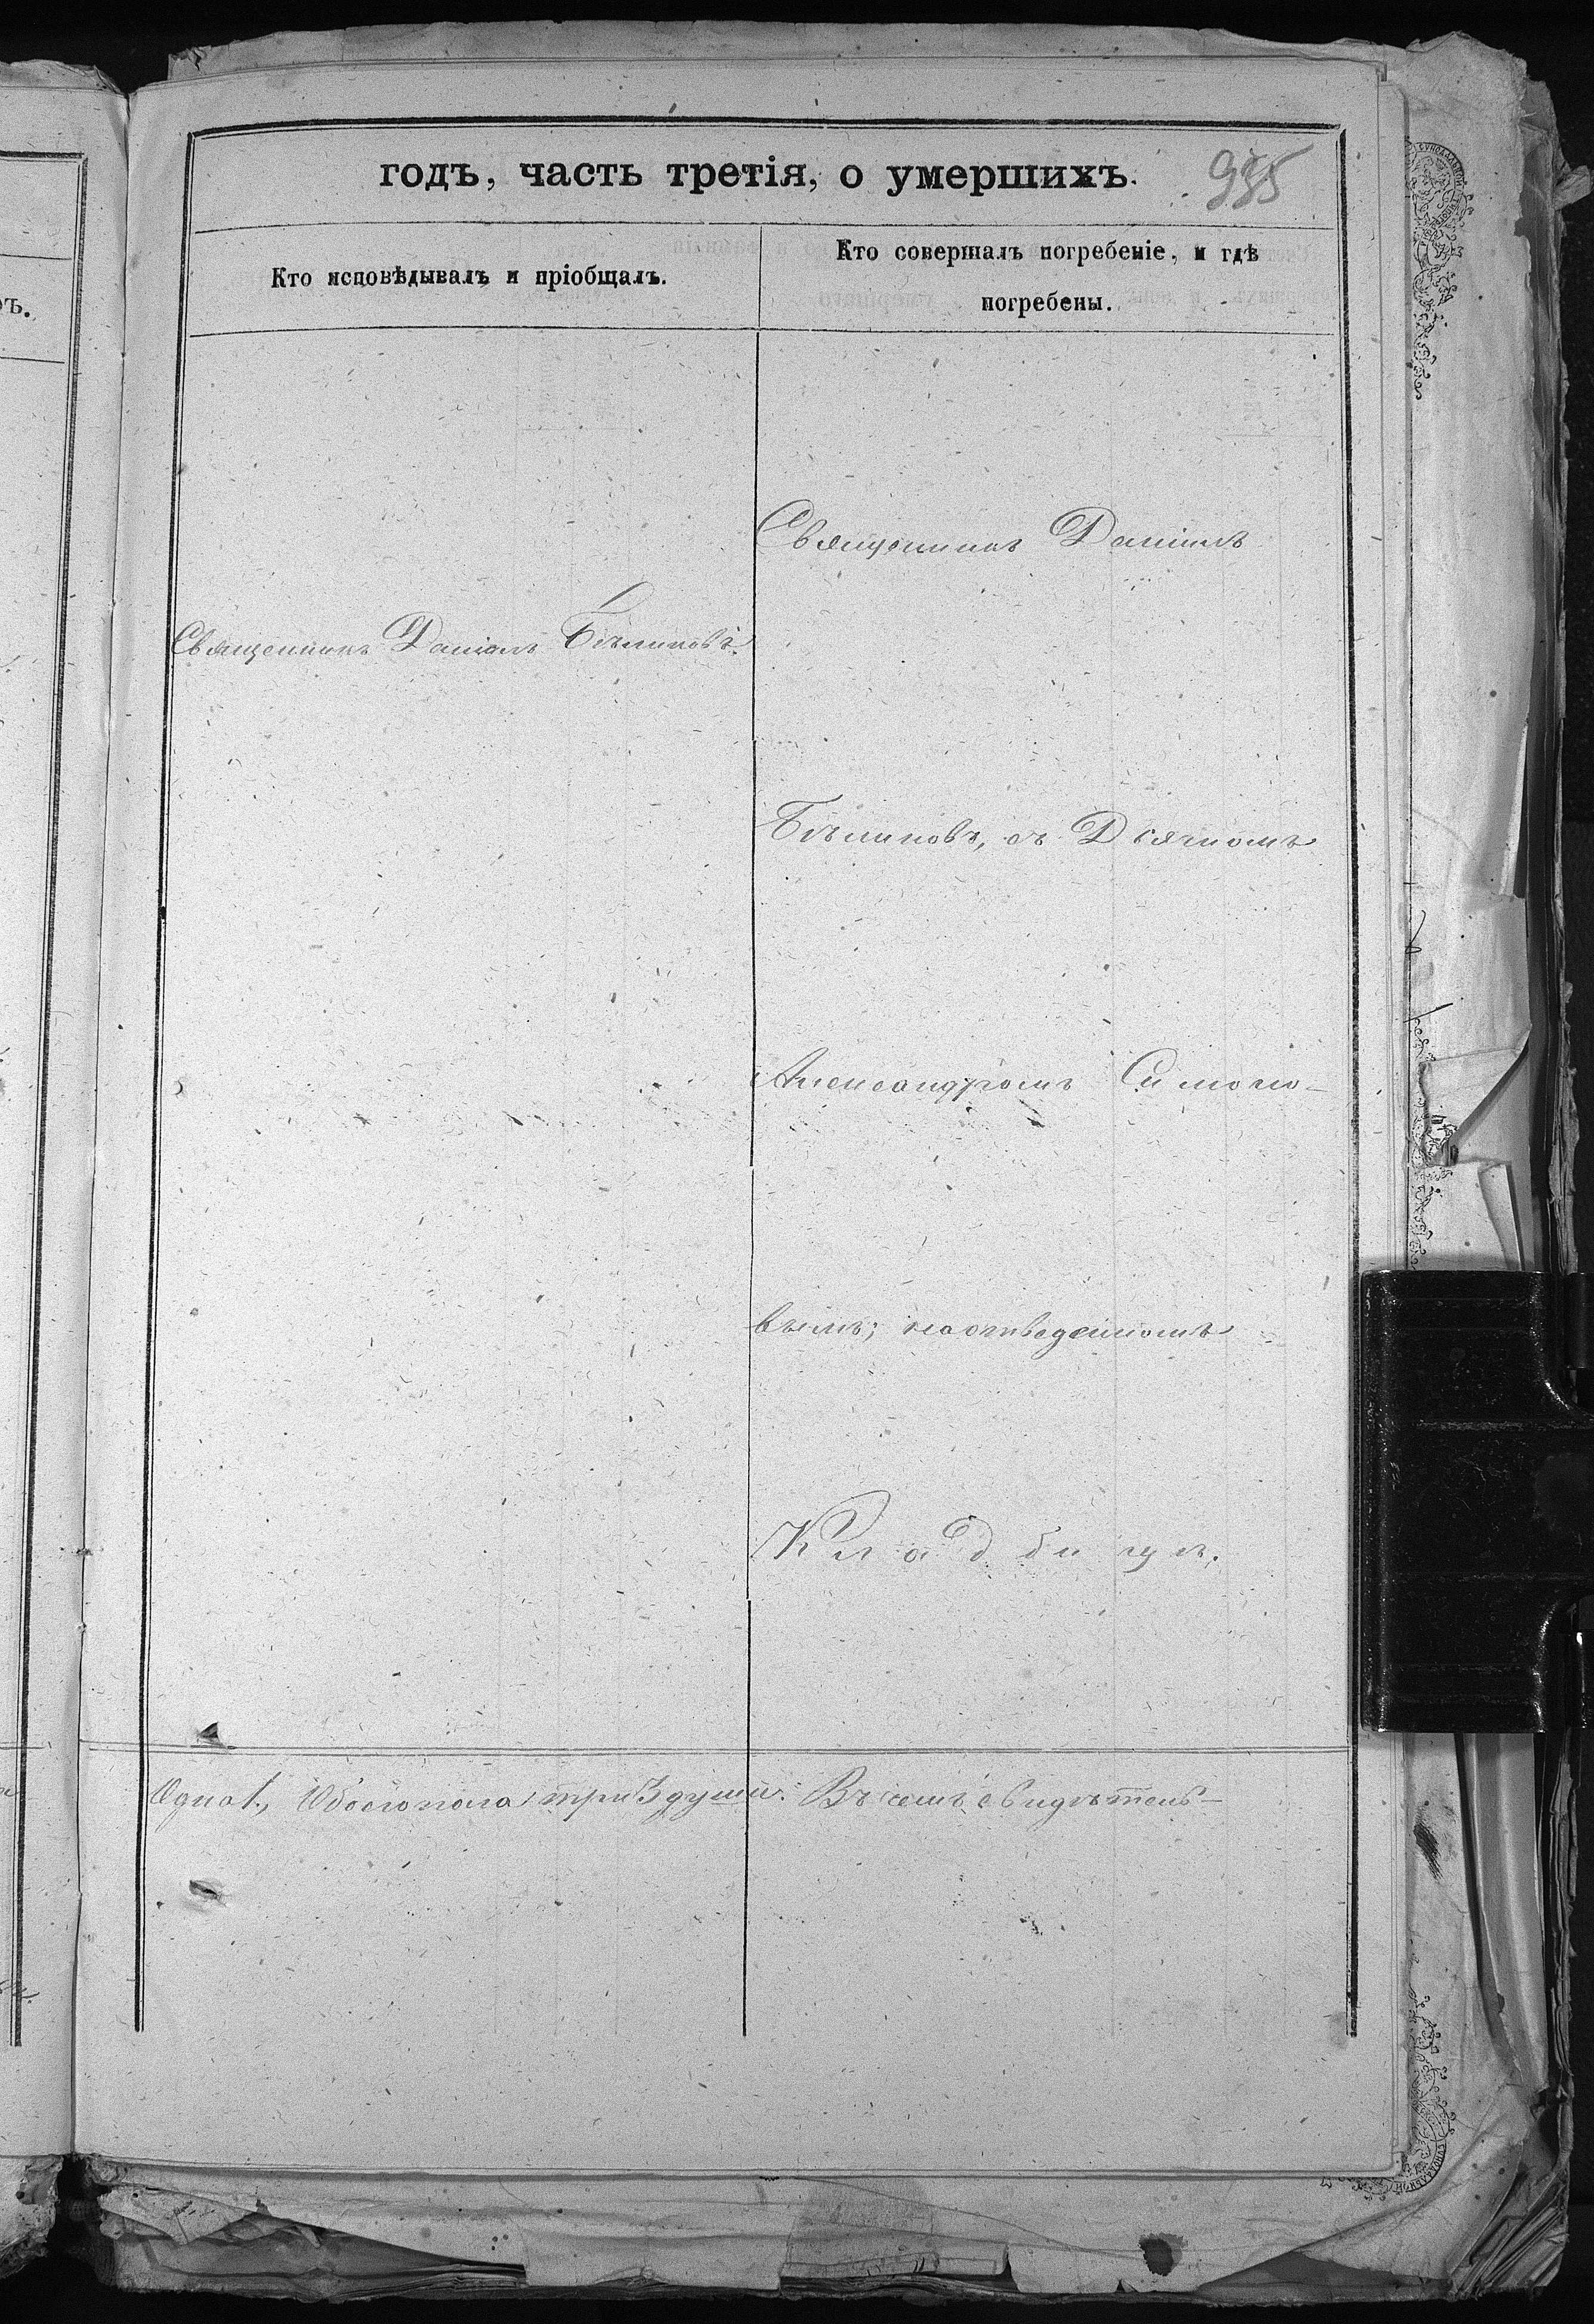 годъ, часть третія, о умершихъ.
Кто исповѣдывалъ и пріобщалъ.
Кто совершалъ погребеніе, и гдѣ
погребены.
Священникъ Даніилъ
Священникъ Даніилъ Бѣликовъ.
Бѣликовъ, съ Дьячкомъ
Александромъ Симоно-
вымъ; на отведенномъ
Кладбищѣ.
Одна 1., Обоего пола три 3 души. Въ семъ свидѣтель-